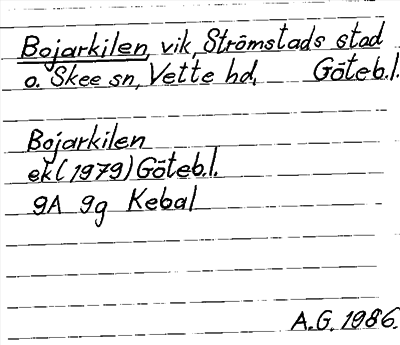 Bojarkilen, vik, Strömstads stad
o. Skee sn, Vette hd, Göteb.l.
Bojarkilen
ek (1979) Göteb.l.
9A 9g Kebal
A.G. 1986.